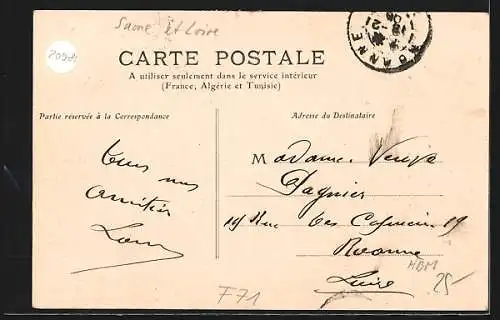 Saone et Loire
CARTE POSTALE
A utiliser seulement dans le service intérieur
(France, Algérie et Tunisie)
ROANNE
Partie réservée à la Correspondance
Adresse du Destinataire
tous nos
amitiés
Madame Veuve
Dagnier
19 Rue des Capucins 19
Roanne
Loire
HBM
25-
F71